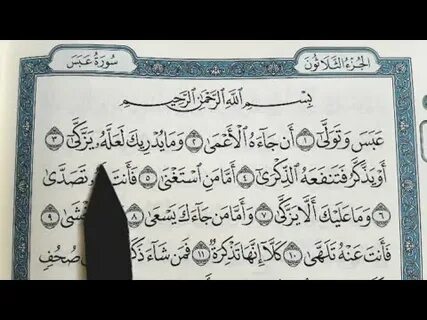 الجُزْءُ الثَّلَاثُونَ
سُورَةُ عَبَسَ
بِسْمِ اللَّهِ الرَّحْمَٰنِ الرَّحِيمِ
عَبَسَ وَتَوَلَّىٰٓ ١ أَن جَآءَهُ ٱلْأَعْمَىٰ ٢ وَمَا يُدْرِيكَ لَعَلَّهُۥ يَزَّكَّىٰٓ ٣
أَوْ يَذَّكَّرُ فَتَنفَعَهُ ٱلذِّكْرَىٰٓ ٤ أَمَّا مَنِ ٱسْتَغْنَىٰ ٥ فَأَنتَ تَصَدَّىٰ
٦ وَمَا عَلَيْكَ أَلَّا يَزَّكَّىٰ ٧ وَأَمَّا مَن جَآءَكَ يَسْعَىٰ ٨ ٩
فَأَنتَ عَنْهُ تَلَهَّىٰ ١٠ كَلَّآ إِنَّهَا تَذْكِرَةٌ ١١ فَمَن شَآءَ صُحُفٍ